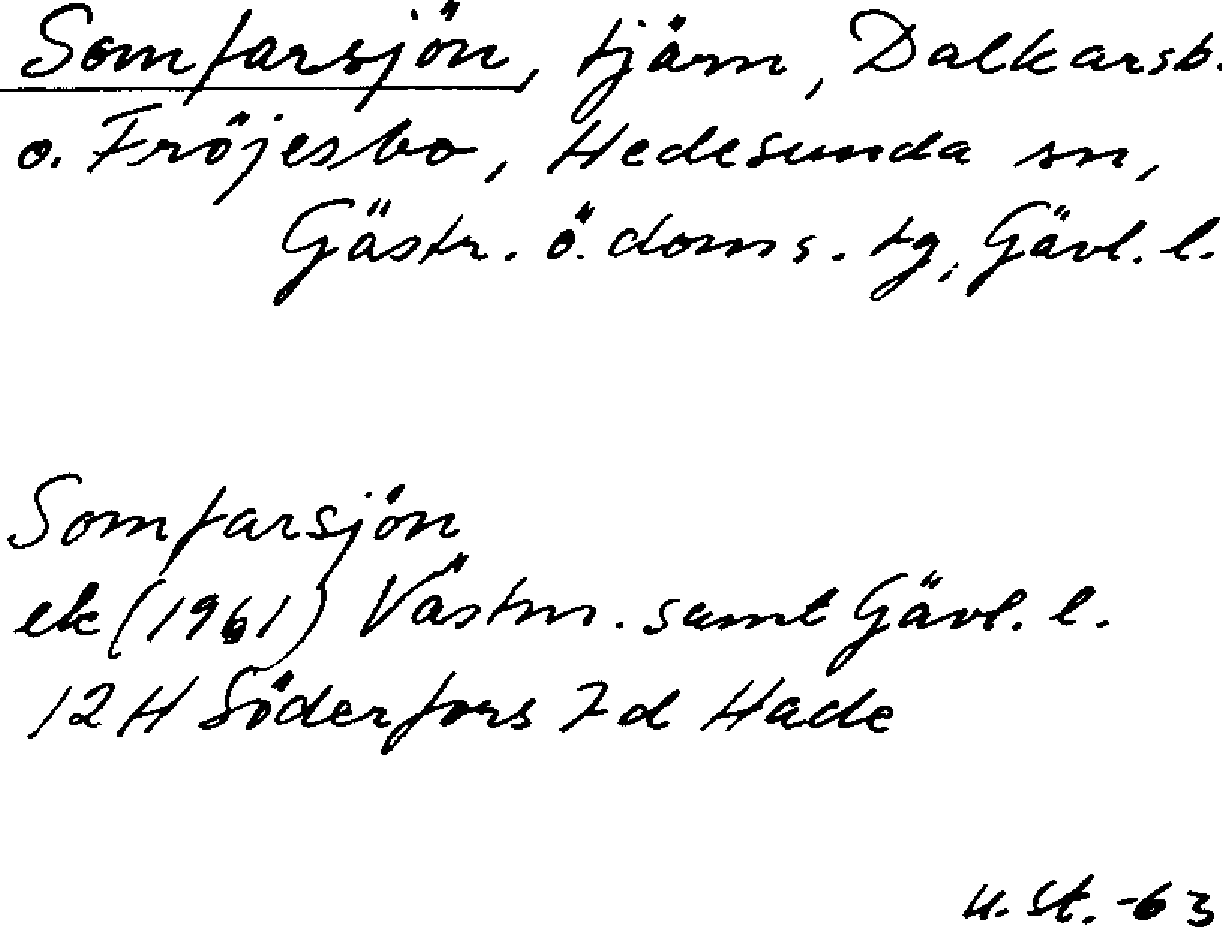 Somfarsjön, tjärn, Dalkarsb.
o. Fröjesbo, Hedesunda sn,
Gästr. ö. doms. tg, Gävl. l.
Somfarsjön
ek (1961) Västm. samt Gävl. l.
12 H Söderfors 7 d Hade
u. St. -63